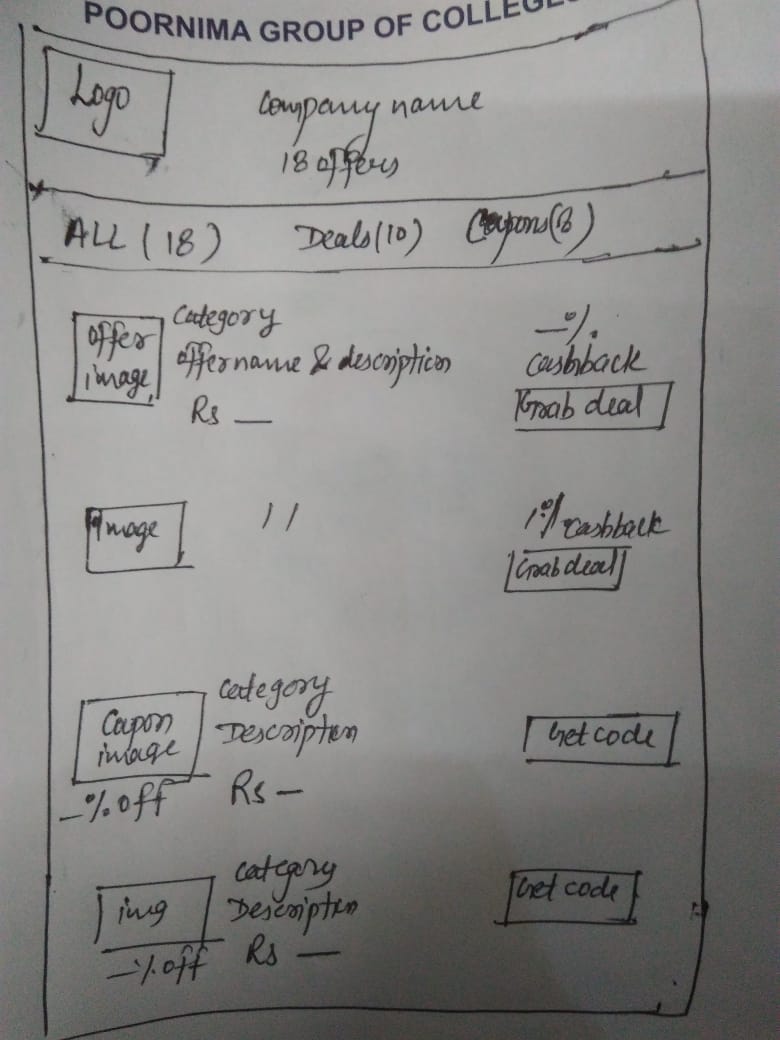 POORNIMA GROUP OF COLLEGES
Logo
Company name
18 offers
ALL (18) Deals(10) Coupons(8)
offer image
Category
offer name & description
Rs —
—%.
cashback
Grab deal
Image
11
1% cashback
Grab deal
Coupon image
—% off
Category
Description
Rs —
Get code
img
—% off
Category
Description
Rs —
Get code